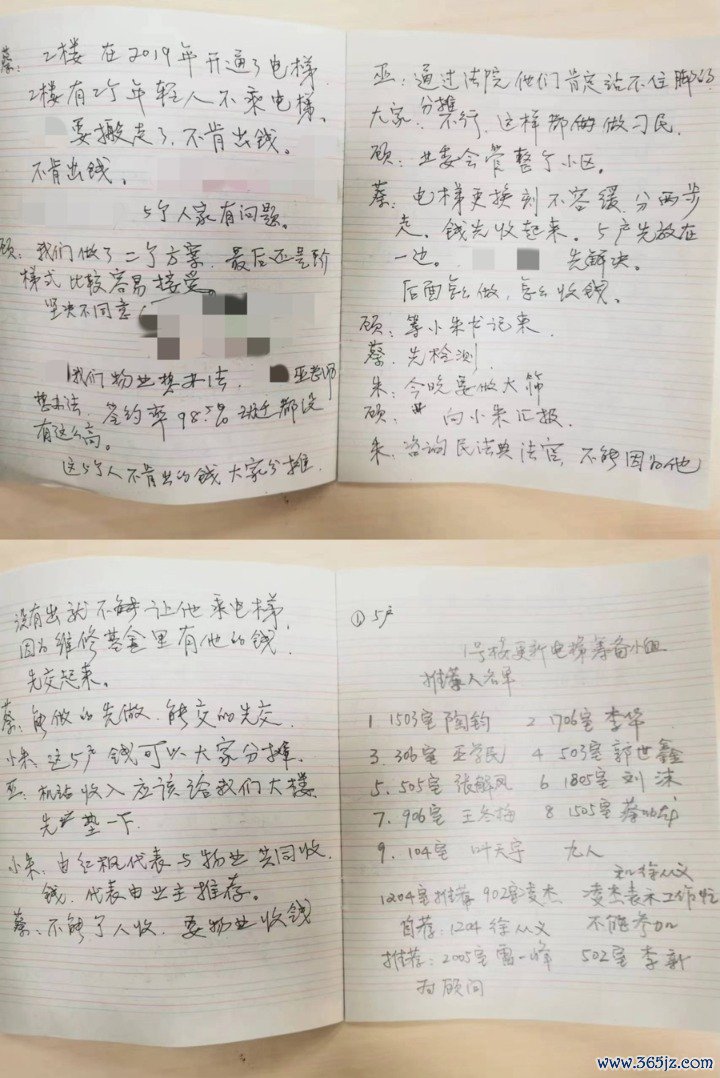 蔡: 2楼 在2019年开通了电梯.
2楼有2个年轻人不乘电梯.
要搬走了, 不肯出钱。
不肯出钱。
5个人家有问题。
顾: 我们做了二个方案, 最后还是阶
梯式比较容易接受。
坚决不同意
我们物业想办法, 巫老师
想办法, 签约率98.5% 都没
有这么高。
这5个人不肯出的钱, 大家分摊.
巫: 通过法院他们肯定站不住脚的
大家分摊不行, 这样都做刁民.
顾: 业委会管整个小区。
蔡: 电梯更换刻不容缓, 分两步
走。钱先收起来。5户先放在
一边。 先解决。
后面怎么做, 怎么收钱。
顾: 等小朱书记来.
蔡: 先检测
朱: 今晚要做大筛
顾: 向小朱汇报.
朱: 咨询民法典法官, 不能因为他
没有出就不能让他乘电梯,
因为维修基金里有他的钱.
先交起来。
蔡: 能做的先做, 能交的先交.
小朱: 这5户钱可以大家分摊.
巫: 机站收入应该给我们大楼
先垫一下.
小朱: 由红枫代表与物业共同收
钱, 代表由业主推荐。
蔡: 不能个人收, 要物业收钱
① 5户
1号楼更新电梯筹备小组
推荐人名单
1 1503室 陶钧 2 1706室 李华
3. 306室 巫学民 4 503室 郭世鑫
5. 505室 张解风 6 1805室 刘沫
7. 906室 王冬梅 8 1505室 蔡
9. 104室 叶天宇 九人
徐从义
1204室推荐 902室凌杰 凌杰表示工作忙
自荐: 1204 徐从义 不能参加
推荐: 2005室 雷一峰 502室 李新
为顾问
www.365jz.com